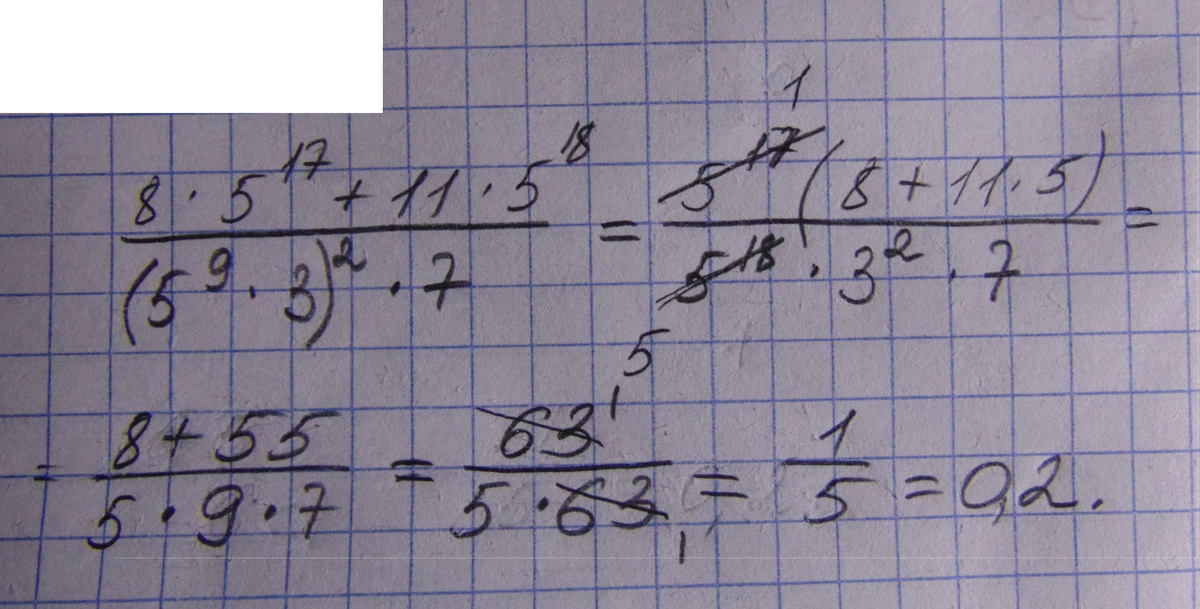 (8 · 5^17 + 11 · 5^18) / ((5^9 · 3)^2 · 7) = (5^17 (8 + 11 · 5)) / (5^18 · 3^2 · 7) =
1
5
= (8 + 55) / (5 · 9 · 7) = 63 / (5 · 63) = 1/5 = 0,2.
1
1